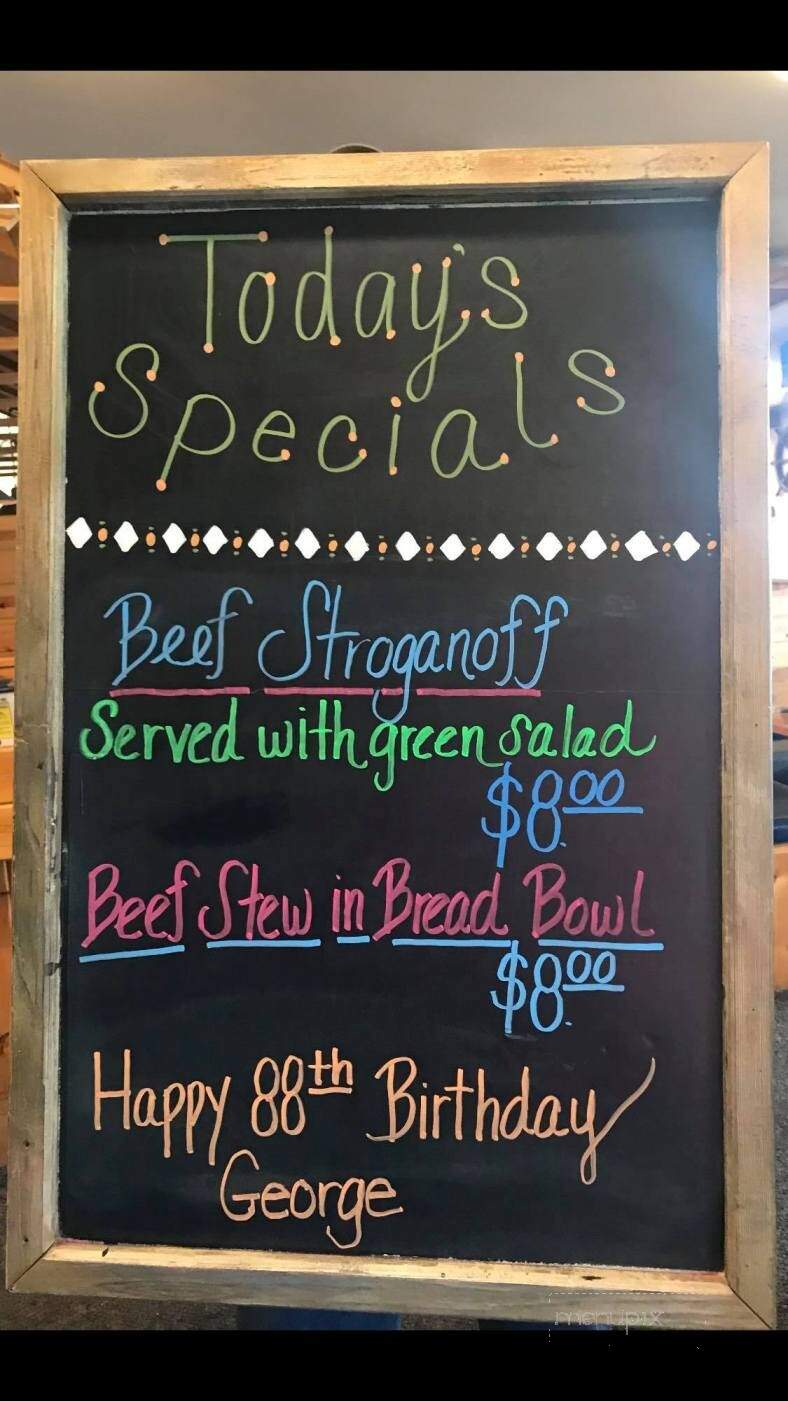 Today's
Specials
Beef Stroganoff
Served with green salad
$8.00
Beef Stew in Bread Bowl
$8.00
Happy 88th Birthday
George
menupix